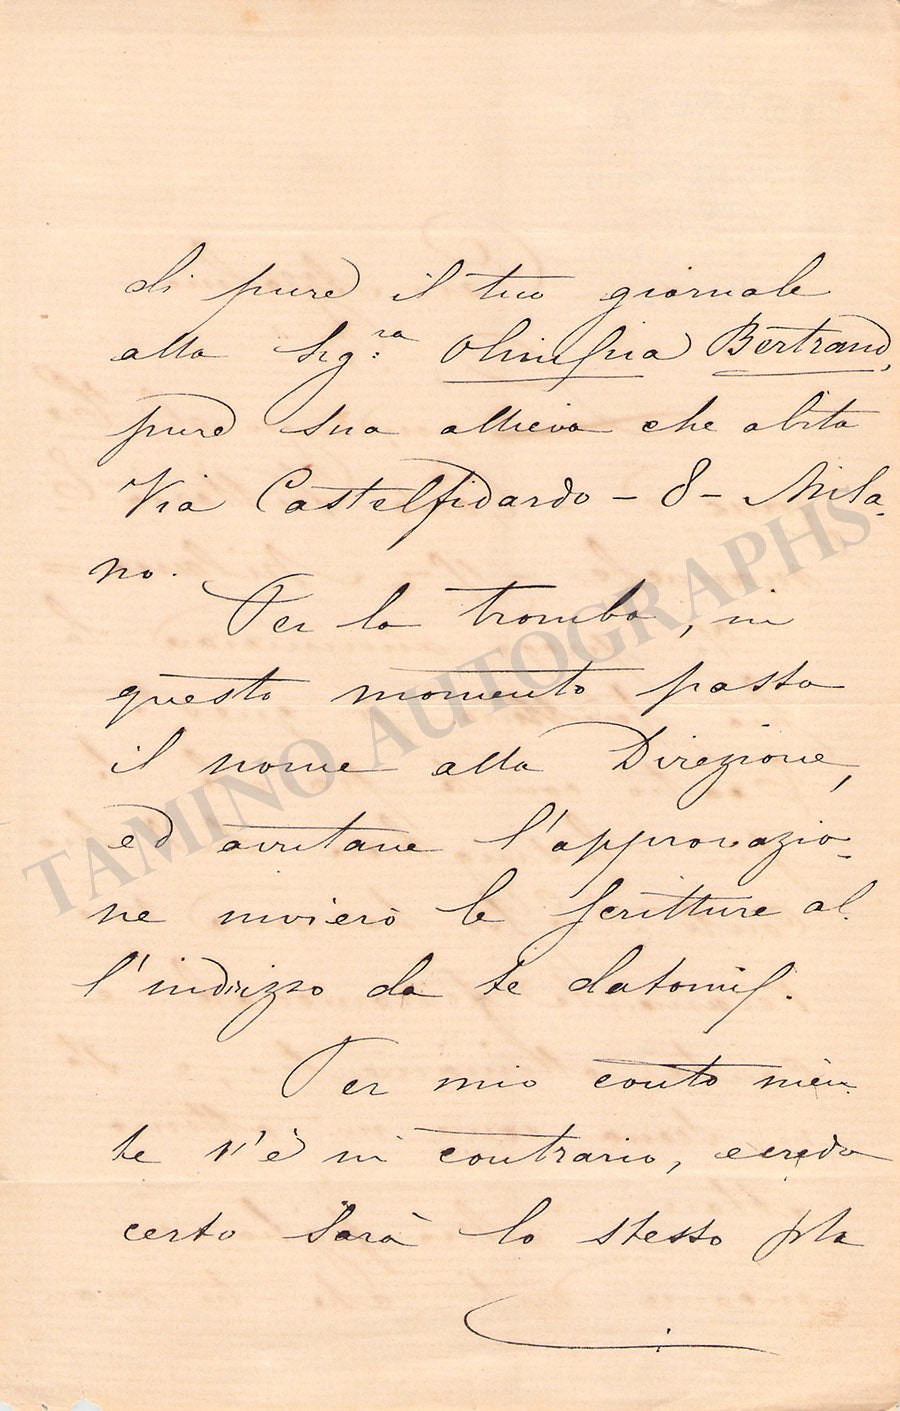 di pure il tuo giornale
alla Sig.ra Olimpia Bertrand,
pure sua allieva che abita
Via Castelfidardo - 8 - Mila-
no.
Per la tromba, in
questo momento passo
il nome alla Direzione,
ed avutane l'approvazio-
ne invierò le scritture al-
l'indirizzo da te datomi.
Per mio conto nien-
te v'è in contrario, e credo
certo sarà lo stesso
TAMINO AUTOGRAPHS